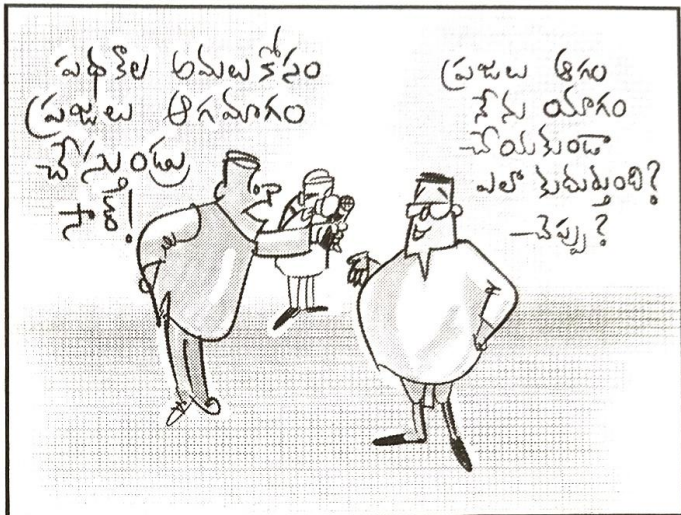 పథకాల అమలు కోసం
ప్రజలు ఆగమాగం
చేస్తుండ్రు
సార్!
ప్రజలు ఆగం
నేను యాగం
చేయకుండా
ఎలా కుదుర్తుంది?
చెప్పు?